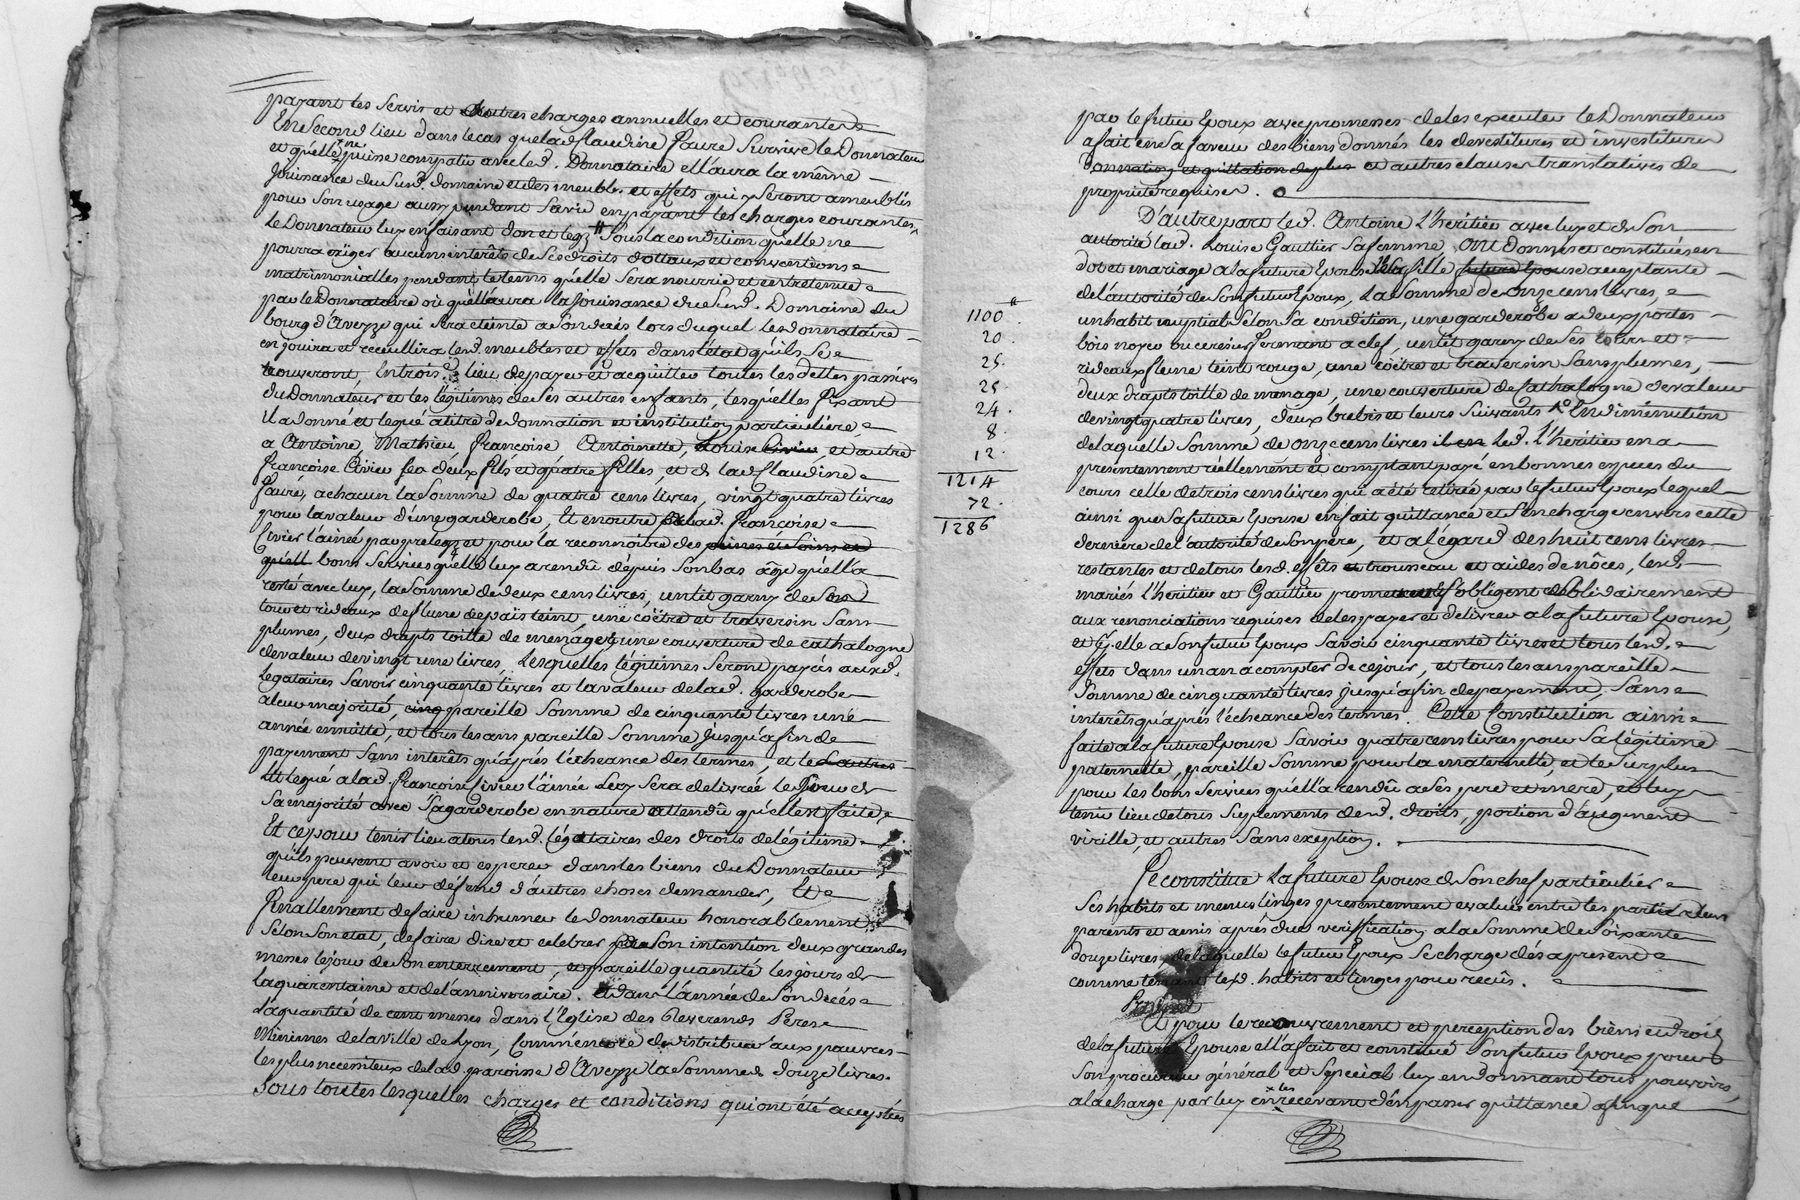 payant les servis et autres charges annuelles et courantes
En second lieu dans le cas que lad. Claudine Faure survive le Donnateur
et qu'elle ne puisse compatir avec led. Donnataire ell'aura la même
jouissance du susd. domaine et des meubles et effets qui y seront ameublis
pour son usage aussy pendant sa vie en payant les charges courantes
le Donnateur luy en faisant don et legz sous la condition qu'elle ne
pourra exiger aucuns interêts de ses droits dottaux et conventions
matrimonialles pendant le tems qu'elle sera nourrie et entretenue
par le Donnataire où qu'ell'aura la jouissance du susd. Domaine du
bourg d'Aveyze qui sera eteinte a son décés lors duquel le donnataire
en jouira et recueillira lesd. meubles et effets dans l'état qu'ils se
trouveront, Entrois.e lieu de payer et acquitter toutes les dettes passives
du Donnateur et les légitimes de ses autres enfants, lesquelles fixant
il a donné et legué a titre de donnation et institution particulière
a Antoine, Mathieu, françoise Antoinette, Louise et autre
françoise Civier ses deux fils et quatre filles, et de lad. Claudine
Faure, a chacun la somme de quatre cens livres, vingt quatre livres
pour la valeur d'une garderobe, Et en outre a lad. françoise
Civier l'ainée par prelegz et pour la reconnoitre des peines et soins et
qu'ell bons services qu'elle luy a rendû dépuis son bas âge qu'ell'a
resté avec luy, la somme de deux cens livres, un lit garny de son
tour et rideaux de flune depais teint, une coëtre et traversin sans
plumes, deux drapts toille de menage et une couverture de cathalogne
de valeur de vingt une livres, Lesquelles légitimes seront payées auxd.
legataires savoir cinquante livres et la valeur de lad. garderobe
a leur majorité, cinq pareille somme de cinquante livres une
année ensuitte, et tous les ans pareille somme jusqu'a fin de
payement sans interêts qu'aprés l'écheance des termes, et le
lit legué a lad. françoise Civier l'ainée luy sera delivrée le jour de
sa majorité avec sa garderobe en nature attendû qu'elle est faite,
Et ce pour tenir lieu a tous lesd. légataires des droits de légitime
qu'ils peuvent avoir et esperer dans les biens du Donnateur
leur pere qui leur défend d'autres choses demander, Et
Finallement de faire inhumer le donnateur honorablement
sélon son état, de faire dire et celebrer pour son intention deux grandes
messes le jour de son enterrement, et pareille quantité les jours de
la quarentaine et de l'anniversaire. et dans l'année de son décés
la quantité de cent messes dans l'Eglise des Reverends Peres
Minimes de la ville de Lyon, Comm'encore de distribuer aux pauvres
les plus necessiteux de lad. paroisse d'Aveyze la somme de douze livres.
Sous toutes lesquelles charges et conditions qui ont été acceptées
par le futur Epoux avec promesses de les executer le Donnateur
a fait en sa faveur des biens donnés les devestitures et investitures
donnation et quittation de plus et autres clauses translatives de
proprieté requises.
D'autre part led. Antoine L'héritier avec luy et de son
autorité lad. Louise Gaultier sa femme, ont donné et constitué en
dot et mariage a la future Epouse leur fille future Epouse acceptante
de l'autorité de son futur Epoux, La somme de onze cens livres,
un habit nuptial sélon sa condition, une garderobe a deux portes
bois noyer ou cerisier fermant a clef, un lit garny de ses tours et
rideaux flune teint rouge, une coëtre et traversin sans plumes,
deux drapts toille de menage, une couverture de cathalogne de valeur
de vingt quatre livres, deux brebis et leurs suivants En diminution
de laquelle somme de onze cens livres il en led. L'héritier en a
présentement réellement et comptant payé en bonnes especes du
cours celle de trois cens livres qui a été retirée par le futur Epoux lequel
ainsi que sa future Epouse en fait quittance et s'en charge envers cette
derniere de l'autorité de son pere, et a l'égard des huit cens livres
restantes et de tous lesd. effets et trousseau et aides de nôces, lesd.
mariés L'héritier et Gaultier promettent s'obligent solidairement
aux renonciations requises de les payer et delivrer a la future Epouse,
et Icelle a son futur Epoux savoir cinquante livres et tous lesd.
effets dans un an a compter de ce jour, et tous les ans pareille
somme de cinquante livres jusqu'a fin de payement, sans
interêts qu'aprés l'écheance des termes. Cette Constitution ainsi
faite a la future Epouse savoir quatre cens livres pour sa légitime
paternelle, pareille somme pour la maternelle, et le surplus
pour les bons services qu'ell'a rendû a ses pere et mere, et luy
tenir lieu de tous suplements desd. droits, portion d'augment
virille et autres sans exeption.
Se constitue La future Epouse de son chef particulier
ses habits et menus linges présentement evalués entre les parties leurs
parents et amis aprés dûe vérification a la somme de soixante
douze livres de laquelle le futur Epoux se charge dés a present
comme tenant lesd. habits et linges pour recûs.
Et pour le recouvrement et perception des biens et droits
de la future Epouse ell'a fait et constitué son futur Epoux pour
son procureur général et spécial luy en donnant tous pouvoirs,
a la charge par luy en les recevant d'en passer quittance afin que
1100
20.
25.
25.
24.
8.
12.
1214
72.
1286